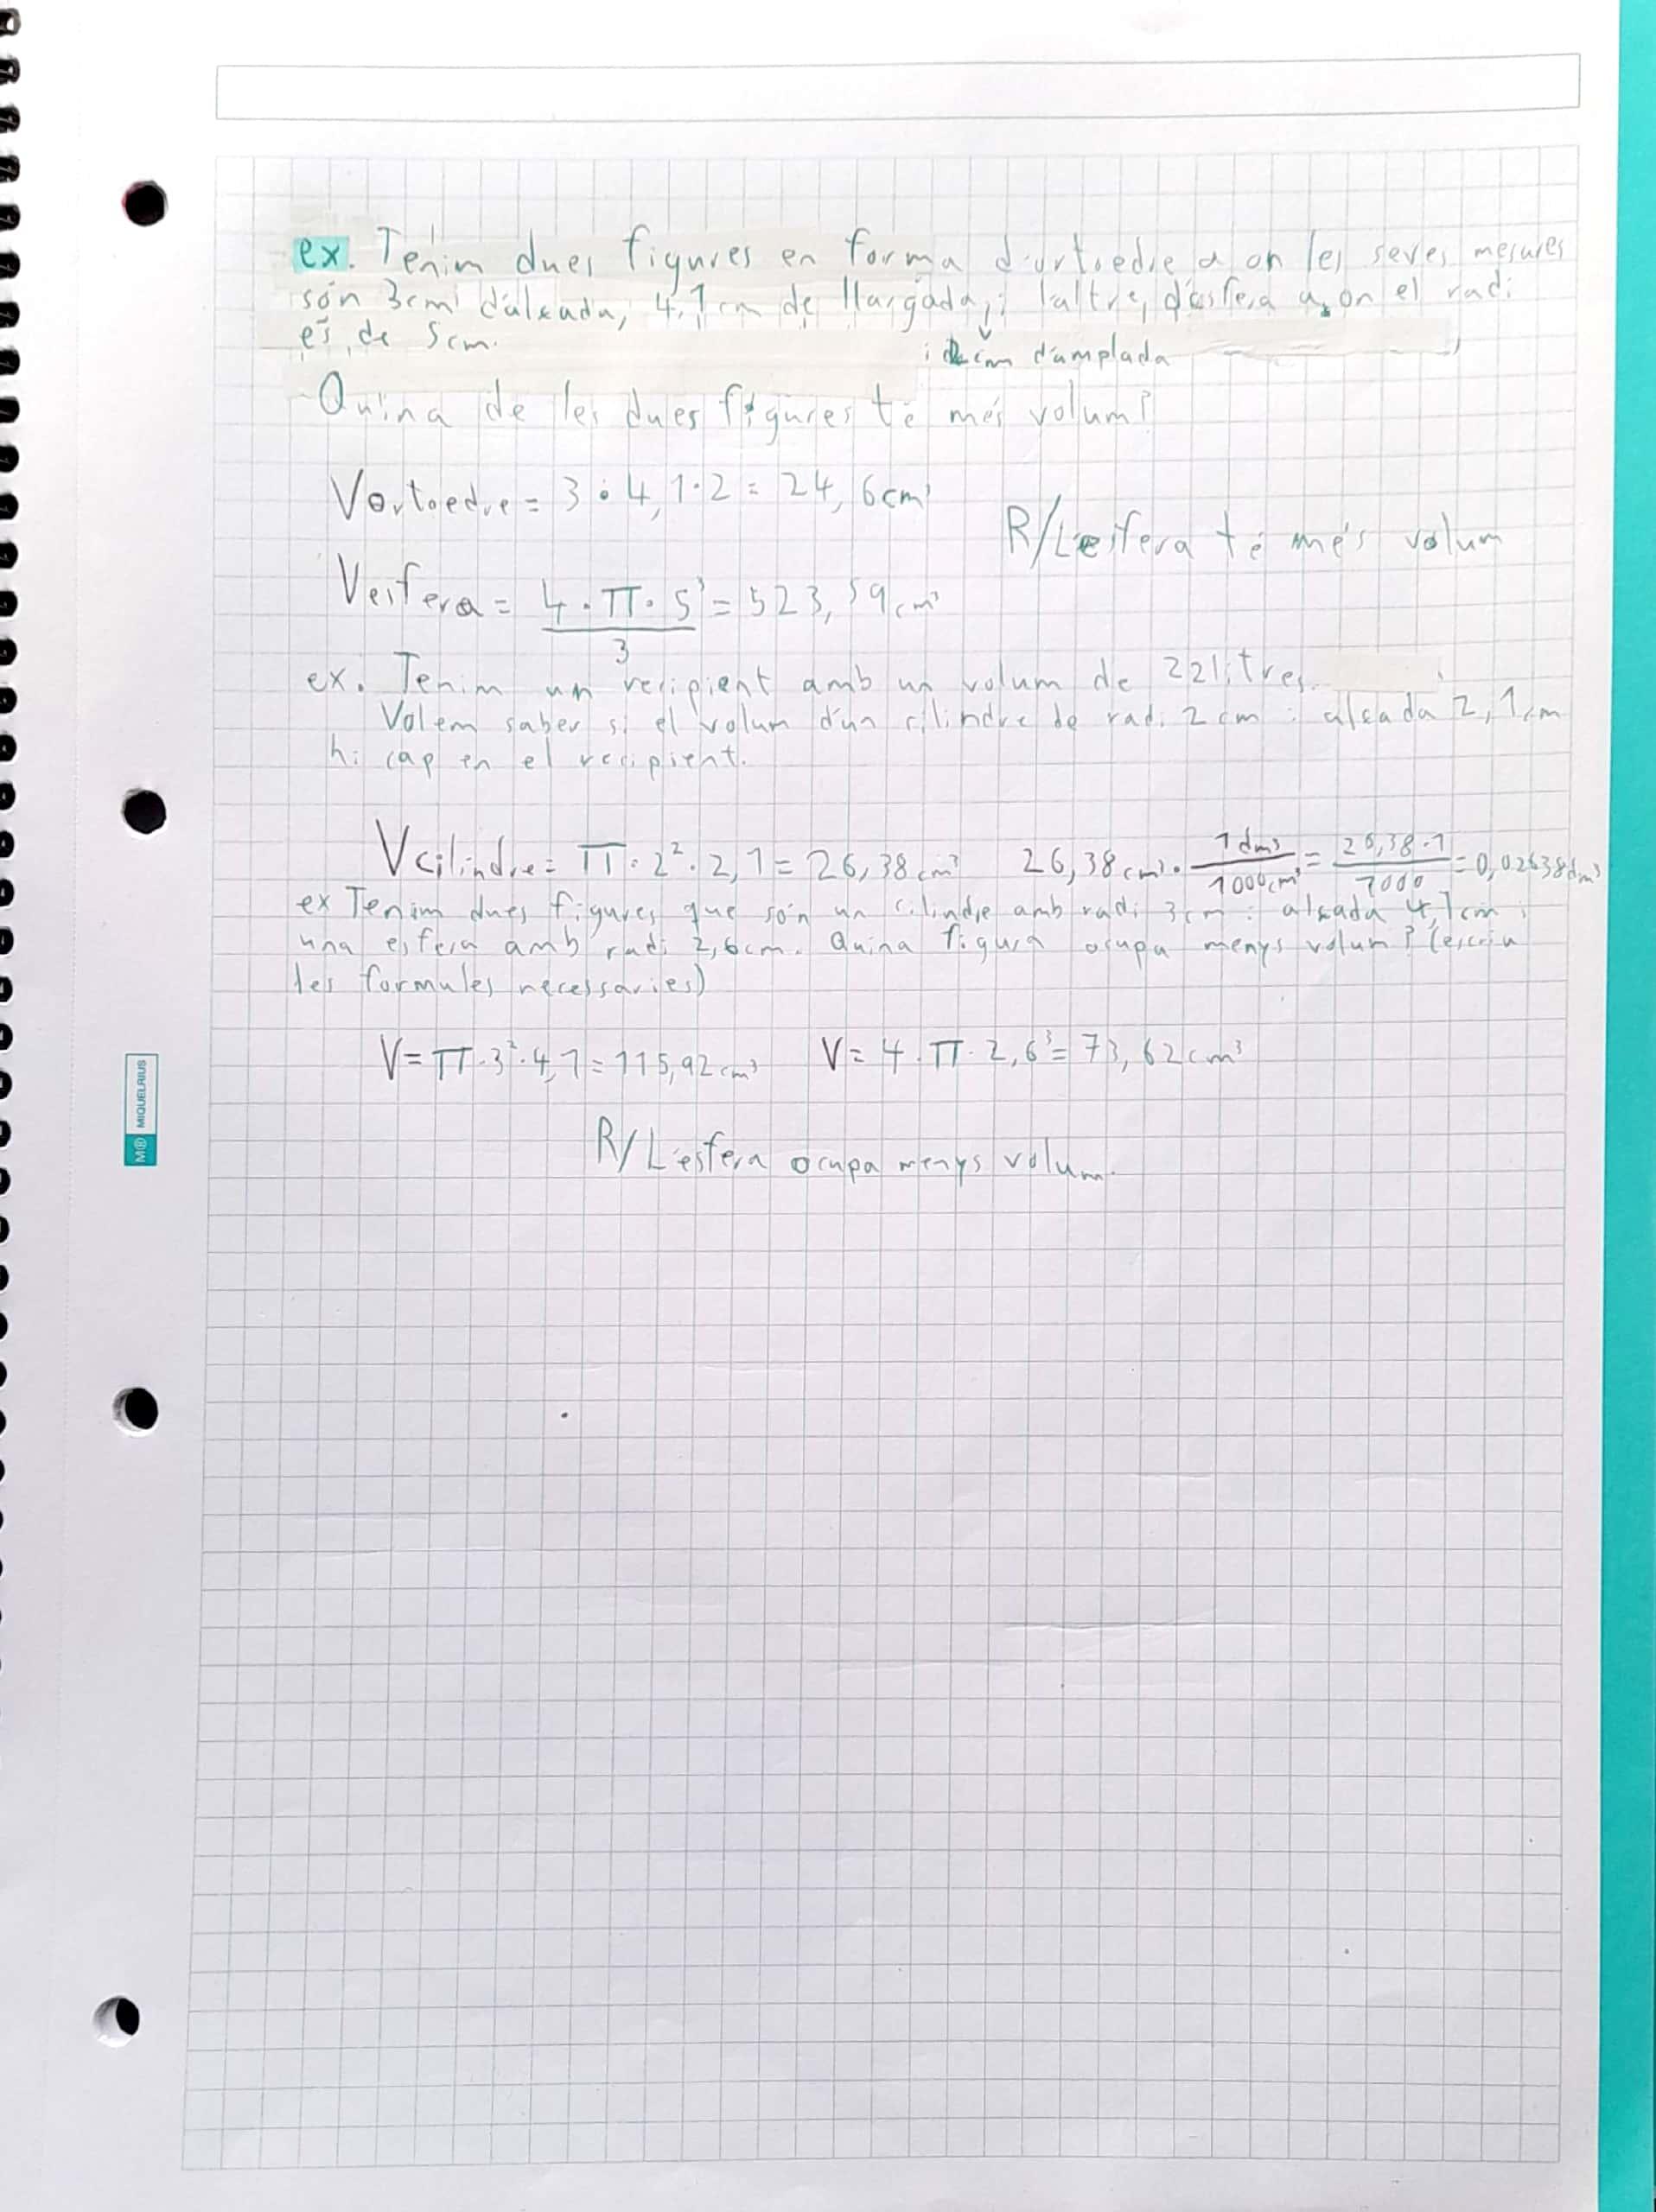 ex. Tenim dues figures en forma d'ortoedre a on les seves mesures
són 3cm d'alçada, 4,1cm de llargada, i l'altre, d'esfera a on el radi
és de 5cm.
i 2cm d'amplada
Quina de les dues figures té més volum?
Vortoedre = 3 · 4,1 · 2 = 24,6cm³
R/L'esfera té més volum
Vesfera = 4 · π · 5³ = 523,59cm³
3
ex. Tenim un recipient amb un volum de 22litres.
Volem saber si el volum d'un cilindre de radi 2cm i alçada 2,1cm
hi cap en el recipient.
Vcilindre = π · 2² · 2,1 = 26,38cm³ 26,38cm³ · 1dm³/1000cm³ = 26,38·1/1000 = 0,02638dm³
ex Tenim dues figures que són un cilindre amb radi 3cm i alçada 4,1cm i
una esfera amb radi 2,6cm. Quina figura ocupa menys volum? (escriu
les formules necessaries)
V = π · 3² · 4,1 = 115,92cm³ V = 4 · π · 2,6³ = 73,62cm³
R/L'esfera ocupa menys volum.
MR MIQUELRIUS